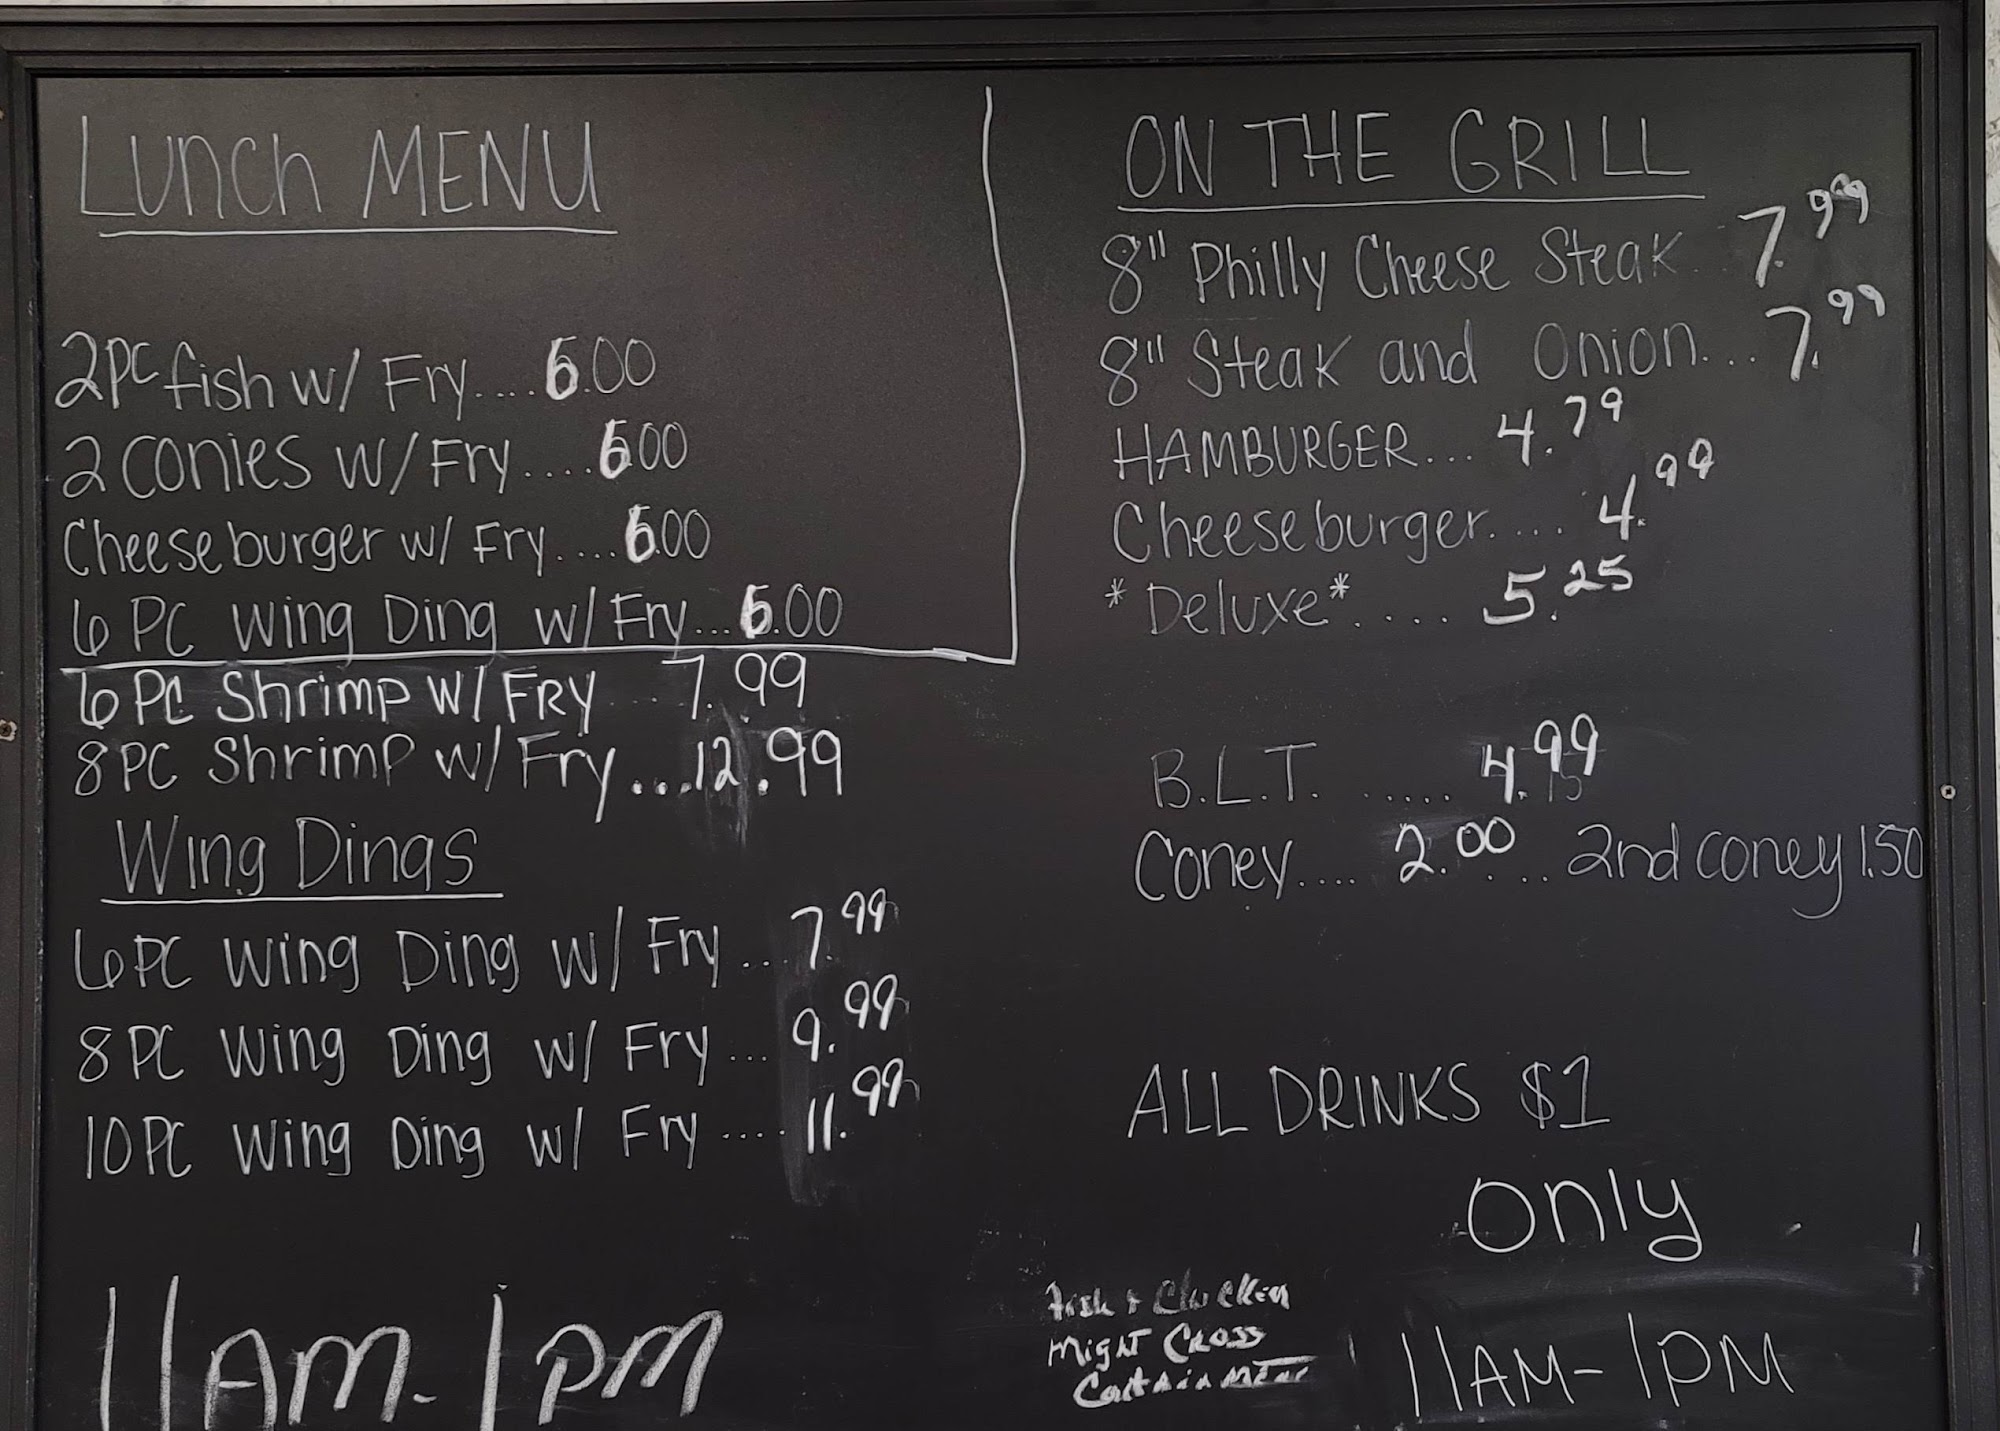 Lunch MENU
2PC fish w/ Fry....6.00
2 CONIES w/ Fry....6.00
Cheeseburger w/ Fry....6.00
6 PC Wing Ding w/ Fry...6.00
6 PC Shrimp w/ FRY....7.99
8 PC Shrimp w/ Fry...12.99
Wing Dings
6 PC Wing Ding w/ Fry...7.99
8 PC Wing Ding w/ Fry...9.99
10 PC Wing Ding w/ Fry....11.99
11AM-1PM
ON THE GRILL
8" Philly Cheese Steak...7.99
8" Steak and Onion...7.99
HAMBURGER...4.79
Cheeseburger....4.99
*Deluxe*....5.25
B.L.T......4.99
Coney....2.00....2nd coney 1.50
ALL DRINKS $1
only
Fish & Chicken
Might Cross
11AM-1PM